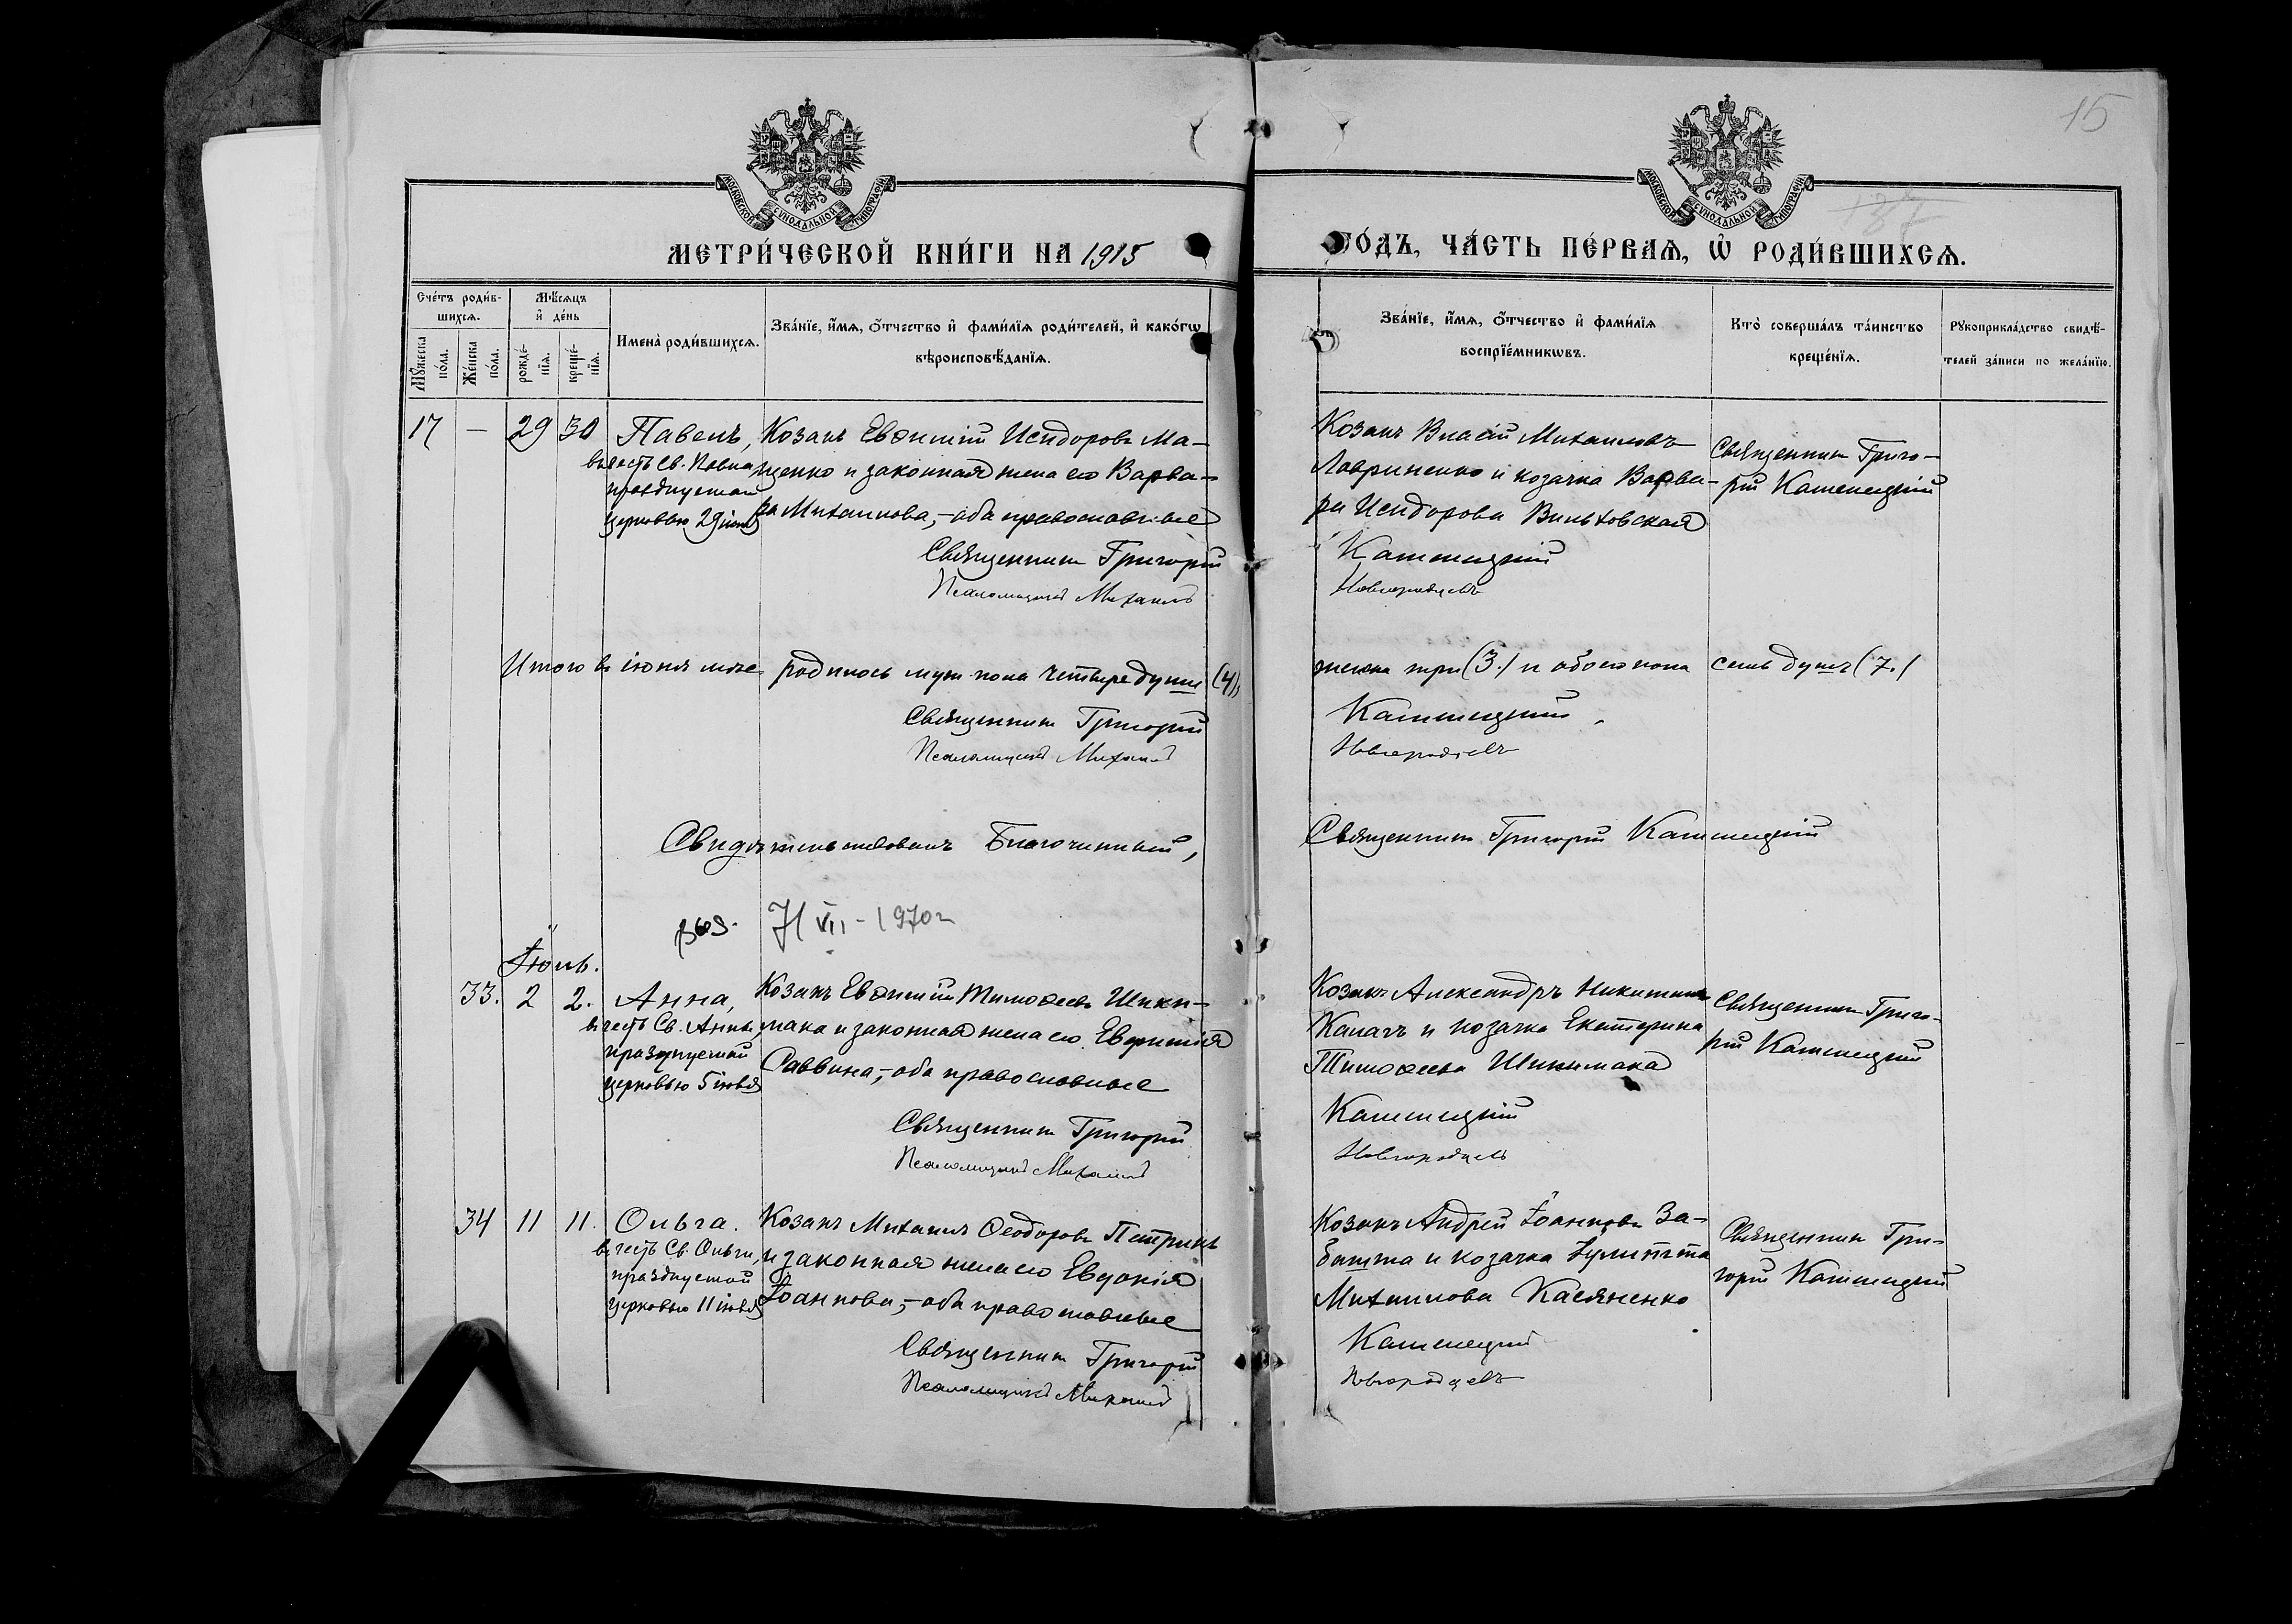 15
МОСКОВСКОЙ СѴНОДАЛЬНОЙ ТИПОГРАФІИ
МОСКОВСКОЙ СѴНОДАЛЬНОЙ ТИПОГРАФІИ
МЕТРИ́ЧЕСКОЙ КНИ́ГИ НА 1915
ГО́ДЪ, ЧА́СТЬ ПЕ́РВАѦ, Ѡ҆ РОДИ́ВШИХСѦ.
Сче́тъ роди́в-
шихсѧ.
Мѣ́сѧцъ
и҆ де́нь
Мꙋ́жеска
по́ла.
Же́нска
по́ла.
рожде́-
нїѧ.
креще́-
нїѧ.
Имена̀ роди́вшихсѧ.
Зва́нїе, и҆́мѧ, ѻ҆́тчество и҆ фами́лїѧ роди́телей, и҆ како́гѡ
вѣроисповѣ́данїѧ.
Зва́нїе, и҆́мѧ, ѻ҆́тчество и҆ фами́лїѧ
воспрїе́мникѡвъ.
Кто̀ соверша́лъ та́инство
креще́нїѧ.
Рꙋкоприкла́дство свидѣ́-
телей за́писи по жела́нїю.
17 — 29 30 Павелъ,
въ честь Св. Павла
празднуемаго
церковью 29 іюня
Козакъ Евѳимій Исидоровъ Ма-
щенко и законная жена его Варва-
ра Михаилова,– оба православные
Священникъ Григорій
Псаломщикъ Михаилъ
Козакъ Власій Михаиловъ
Лавриненко и козачка Варва-
ра Исидорова Вильховская
Каменецкій
Новгородцевъ
Священникъ Григо-
рій Каменецкій
Итого въ іюнѣ м-цѣ родилось муж. пола четыре души (4),
женска три (3.) и обоего пола семь душъ (7.)
Священникъ Григорій
Псаломщикъ Михаилъ
Каменецкій
Новгородцевъ
Свидѣтельствовалъ Благочинный,
Священникъ Григорій Каменецкій
7/VII - 1970 г
Іюль.
33. 2 2. Анна,
въ честь Св. Анны
празднуемой
церковью 5 іюля
Козакъ Евѳимій Тимоѳеевъ Шики-
мака и законная жена его Евфимія
Саввина,– оба православные
Священникъ Григорій
Псаломщикъ Михаилъ
Козакъ Александръ Никитинъ
Калачъ и козачка Екатерина
Тимоѳеева Шикимака
Каменецкій
Новгородцевъ
Священникъ Григо-
рій Каменецкій
34 11 11. Ольга.
въ честь Св. Ольги,
празднуемой
церковью 11 іюля
Козакъ Михаилъ Ѳеодоровъ Петрикъ
и законная жена его Евдокія
Іоаннова,– оба православные
Священникъ Григорій
Псаломщикъ Михаилъ
Козакъ Андрей Іоанновъ За-
башта и козачка Іулитта
Михаилова Касяненко
Каменецкій
Новгородцевъ
Священникъ Гри-
горій Каменецкій